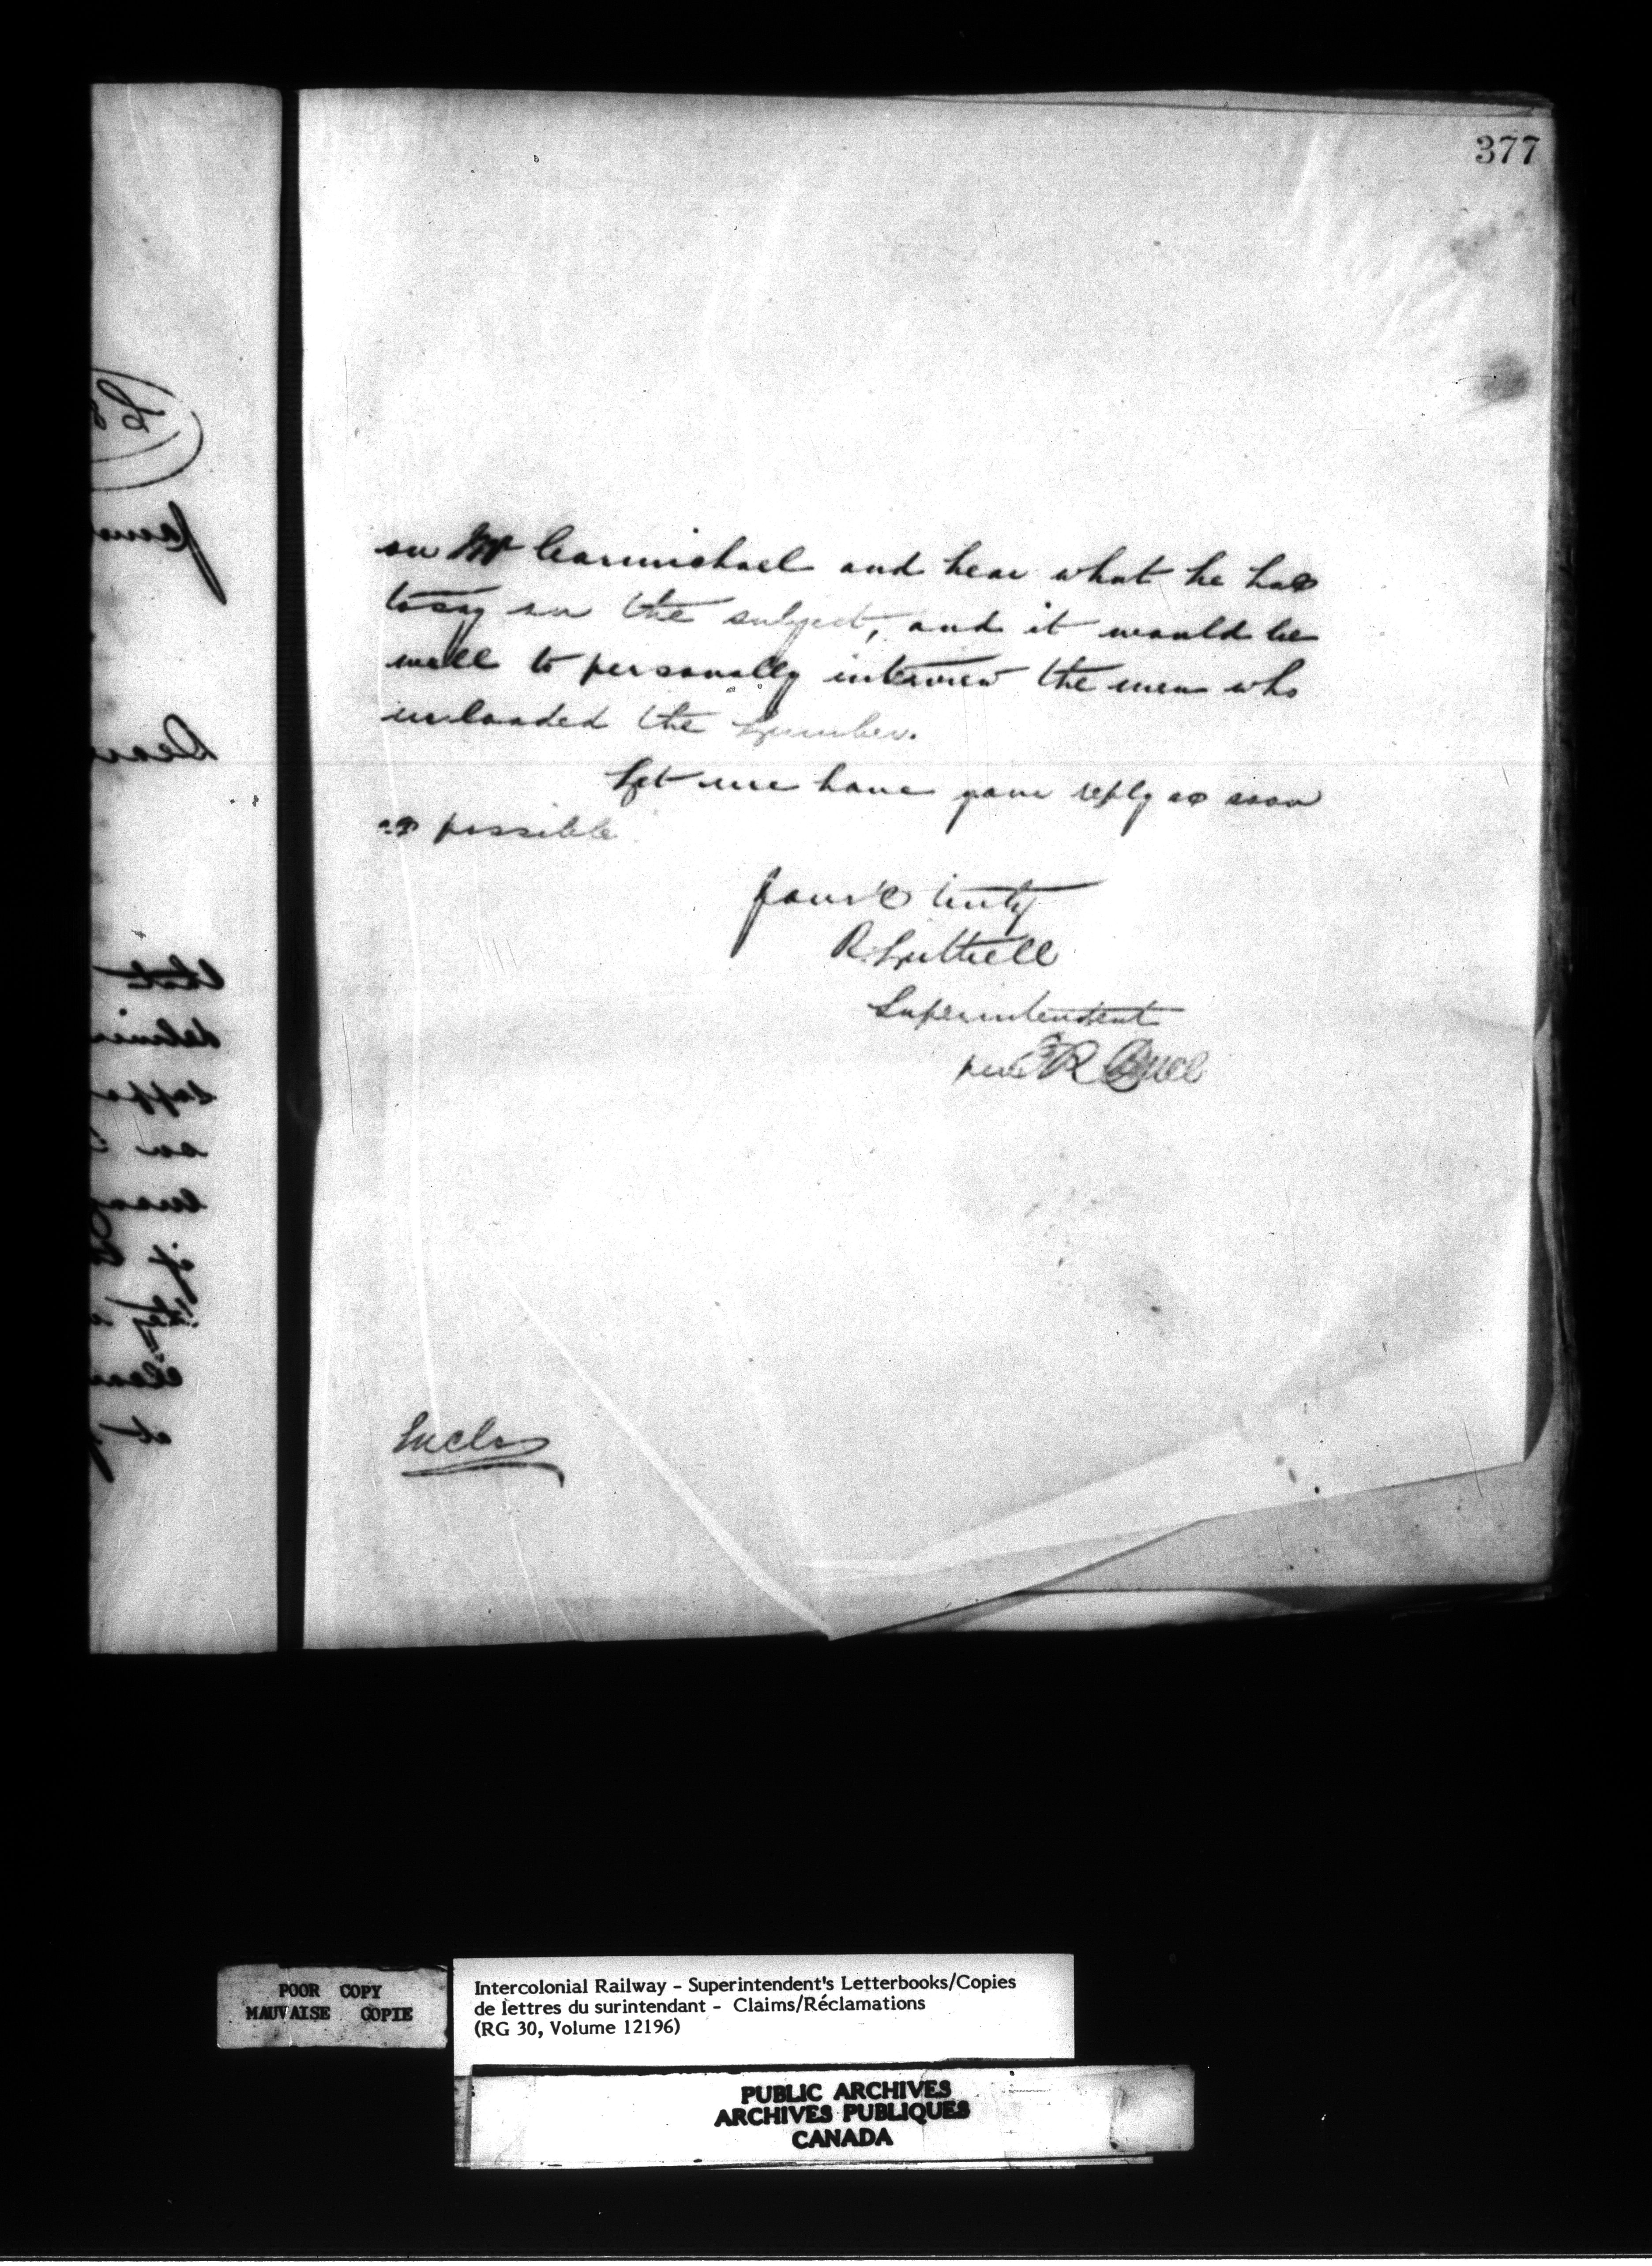 377
on Mr Carmichael and hear what he has
to say on the subject, and it would be
well to personally interview the men who
unloaded the Lumber.
Let me have your reply as soon
as possible
Yours truly
R. Luttrell
Superintendent
per E R
Enclo
POOR COPY
MAUVAISE COPIE
Intercolonial Railway - Superintendent's Letterbooks/Copies
de lettres du surintendant - Claims/Réclamations
(RG 30, Volume 12196)
PUBLIC ARCHIVES
ARCHIVES PUBLIQUES
CANADA